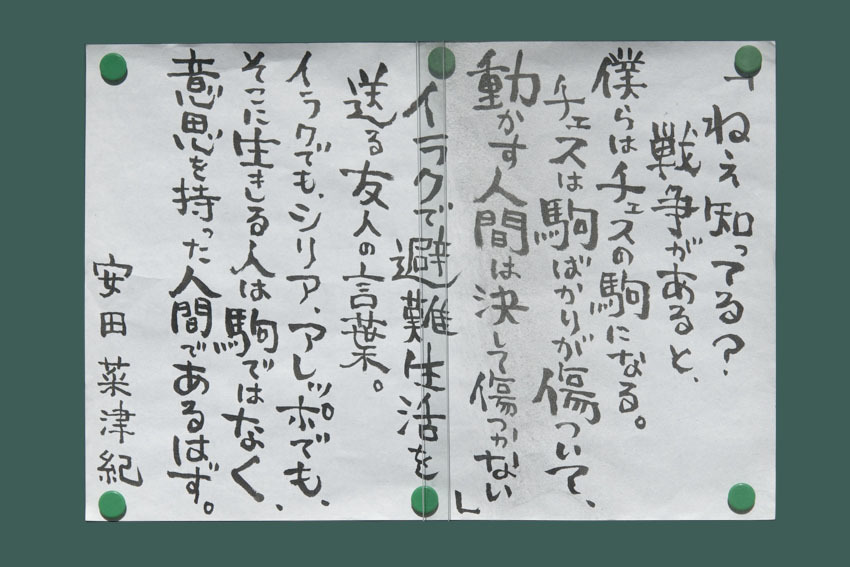 「ねえ知ってる？
戦争があると、
僕らはチェスの駒になる。
チェスは駒ばかりが傷ついて、
動かす人間は決して傷つかない」
イラクで避難生活を
送る友人の言葉。
イラクでも、シリア、アレッポでも、
そこに生きる人は駒ではなく、
意思を持った人間であるはず。
安田菜津紀